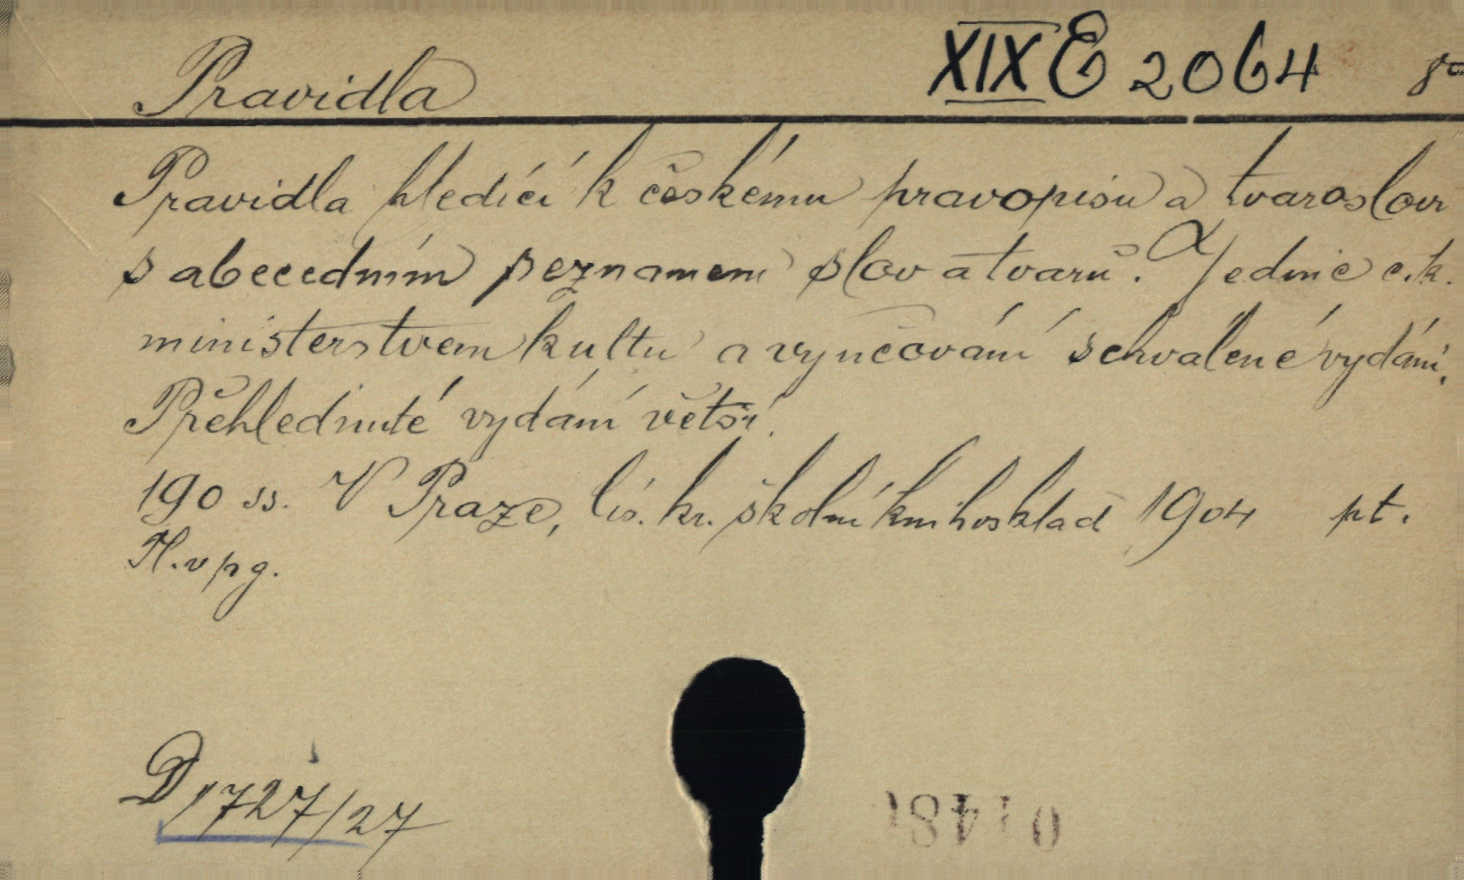 Pravidla XIX E 2064 8°
Pravidla hledící k českému pravopisu a tvarosloví
s abecedním seznamem slov a tvarů. Jedině c. k.
ministerstvem kultu a vyučování schválené vydání.
Přehlednuté vydání větší.
190 ss. V Praze, cís. kr. školní knihosklad 1904 pt.
H. v pg.
D 1727/27